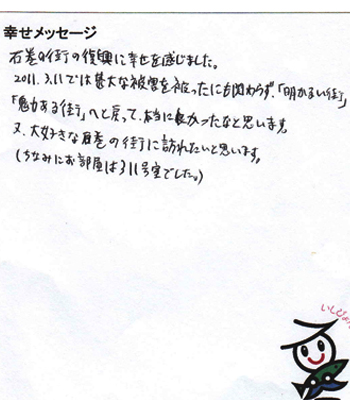 幸せメッセージ
石巻の街の復興に幸せを感じました。
2011.3.11では甚大な被害を被ったにも関わらず、「明かるい街」
「魅力ある街」へと戻って、本当に良かったなと思います。
又、大好きな石巻の街に訪れたいと思います。
(ちなみにお部屋は311号室でした。)